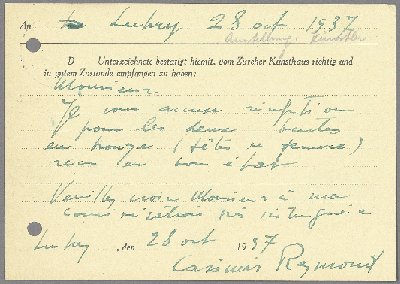 An Lutry 28 oct 1937
D Unterzeichnete bestätigt hiemit, vom Zürcher Kunsthaus richtig und
in gutem Zustande empfangen zu haben:
Monsieur.
Je vous accuse réception
pour les deux bustes
en bronze (têtes de femme)
reçus en bon état
Veuillez croire Monsieur à ma
considération très distinguée
Lutry, den 28 oct 1937
Casimir Reymond